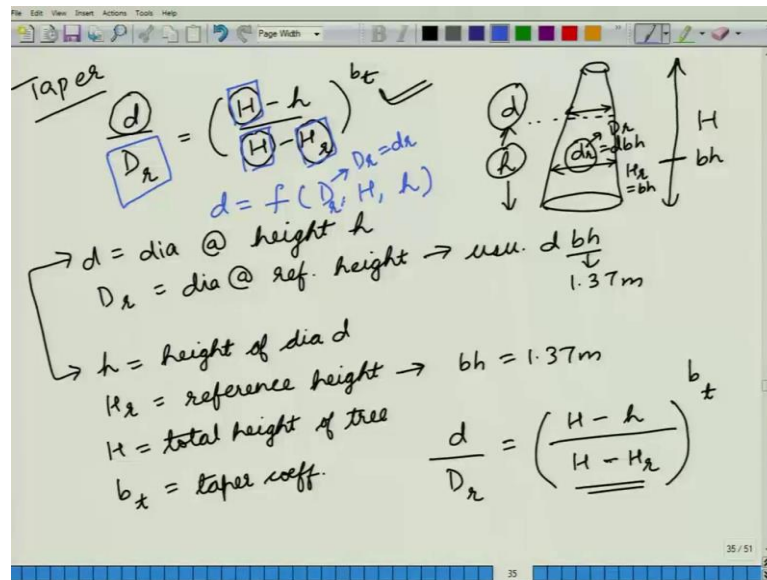 File Edit View Insert Actions Tools Help
Page Width
Taper
d/D_r = (H - h / H - H_r)^b_t
d = f(D_r, H, h)
D_r = dr
d
h
dr
D_r = dbh
H_r = bh
H
bh
d = dia @ height h
D_r = dia @ ref. height → usu. d bh
1.37m
h = height of dia d
H_r = reference height → bh = 1.37m
H = total height of tree
b_t = taper coeff.
d/D_r = (H - h / H - H_r)^b_t
35 / 51
35